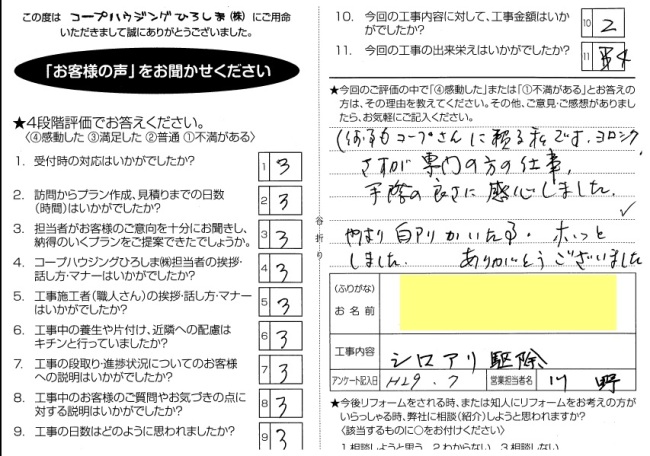 この度は コープハウジングひろしま(株) にご用命
いただきまして誠にありがとうございました。
「お客様の声」をお聞かせください
★4段階評価でお答えください。
〈④感動した ③満足した ②普通 ①不満がある〉
1. 受付時の対応はいかがでしたか? 1 3
2. 訪問からプラン作成、見積りまでの日数
(時間)はいかがでしたか? 2 3
3. 担当者がお客様のご意向を十分にお聞きし、
納得のいくプランをご提案できたでしょうか。 3 3
4. コープハウジングひろしま㈱担当者の挨拶・
話し方・マナーはいかがでしたか? 4 3
5. 工事施工者(職人さん)の挨拶・話し方・マナー
はいかがでしたか? 5 3
6. 工事中の養生や片付け、近隣への配慮は
キチンと行っていましたか? 6 3
7. 工事の段取り・進捗状況についてのお客様
への説明はいかがでしたか? 7 3
8. 工事中のお客様のご質問やお気づきの点に
対する説明はいかがでしたか? 8 3
9. 工事の日数はどのように思われましたか? 9 3
谷折り
10. 今回の工事内容に対して、工事金額はいか
がでしたか? 10 2
11. 今回の工事の出来栄えはいかがでしたか? 11 4
★今回のご評価の中で「④感動した」または「①不満がある」とお答えの
方は、その理由を教えてください。その他、ご意見・ご感想がありまし
たら、お気軽にご記入ください。
(何事もコープさんに頼る私です、ヨロシク)
さすが専門の方の仕事、
手際の良さに感心しました。
やはり白アリがいたる・ホッと
しました. ありがとうございました
(ふりがな)
お名前
工事内容 シロアリ駆除
アンケート記入日 H29.7 営業担当者名 川野
★今後リフォームをされる時、または知人にリフォームをお考えの方が
いらっしゃる時、弊社に相談(紹介)しようと思われますか?
〈該当するものに○をお付けください〉
1.相談しようと思う 2.わからない 3.相談しない